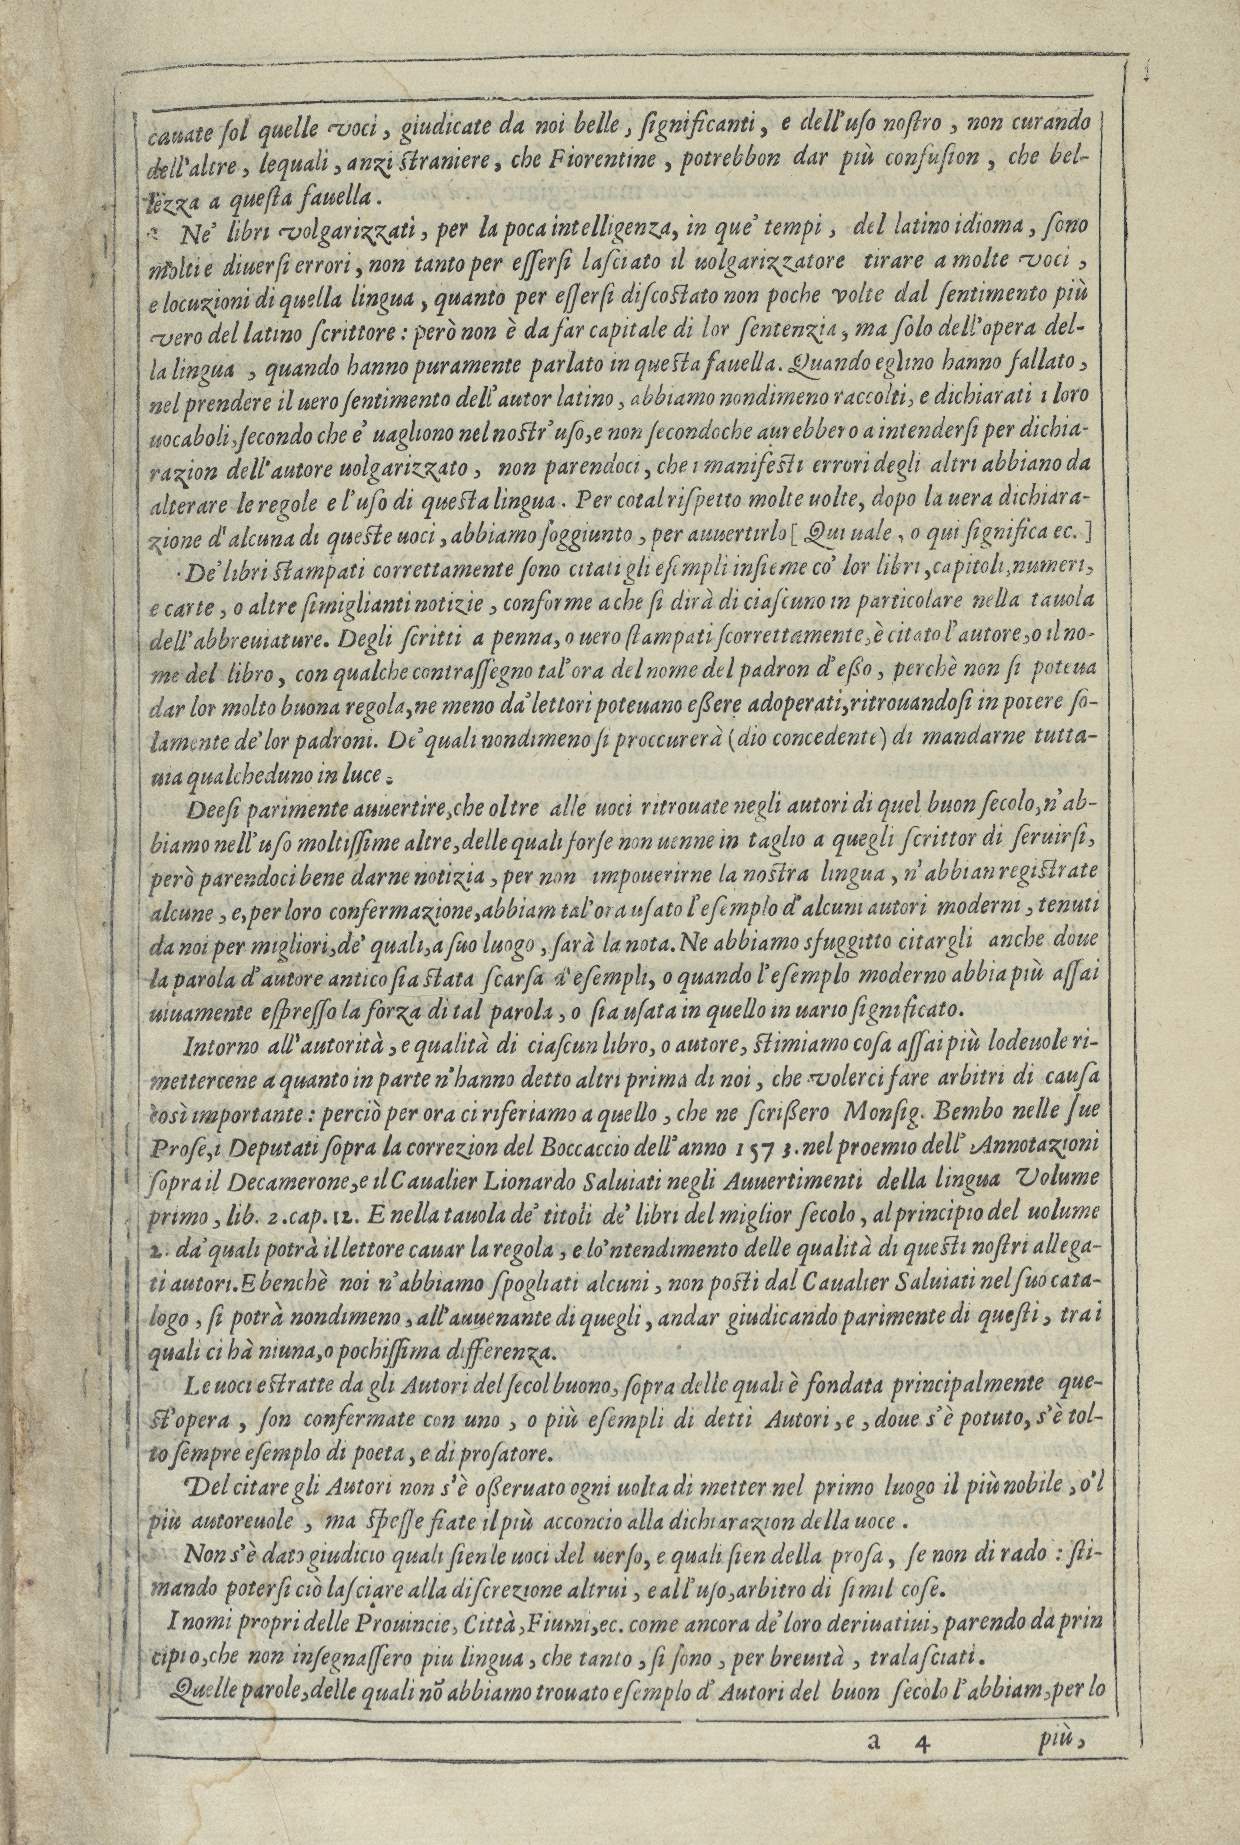 cauate ſol quelle voci, giudicate da noi belle, ſignificanti, e dell'uſo noſtro, non curando
dell'altre, lequali, anzi ſtraniere, che Fiorentine, potrebbon dar più confuſion, che bel-
lezza a queſta fauella.
Ne' libri volgarizzati, per la poca intelligenza, in que' tempi, del latino idioma, ſono
molti e diuerſi errori, non tanto per eſſerſi laſciato il uolgarizzatore tirare a molte voci,
e locuzioni di quella lingua, quanto per eſſerſi diſcoſtato non poche volte dal ſentimento più
vero del latino ſcrittore: però non è da far capitale di lor ſentenzia, ma ſolo dell'opera del-
la lingua, quando hanno puramente parlato in queſta fauella. Quando eglino hanno fallato,
nel prendere il uero ſentimento dell'autor latino, abbiamo nondimeno raccolti, e dichiarati i loro
uocaboli, ſecondo che e' uagliono nel noſtr'uſo, e non ſecondoche aurebbero a intenderſi per dichia-
razion dell'autore uolgarizzato, non parendoci, che i manifeſti errori degli altri abbiano da
alterare le regole e l'uſo di queſta lingua. Per cotal riſpetto molte uolte, dopo la uera dichiara-
zione d'alcuna di queſte uoci, abbiamo ſoggiunto, per auuertirlo [ Qui uale, o qui ſignifica ec. ]
De' libri ſtampati correttamente ſono citati gli eſempli inſieme co' lor libri, capitoli, numeri,
e carte, o altre ſimiglianti notizie, conforme a che ſi dirà di ciaſcuno in particolare nella tauola
dell'abbreuiature. Degli ſcritti a penna, o uero ſtampati ſcorrettamente, è citato l'autore, o il no-
me del libro, con qualche contraſſegno tal'ora del nome del padron d'eßo, perchè non ſi poteua
dar lor molto buona regola, ne meno da' lettori poteuano eßere adoperati, ritrouandoſi in potere ſo-
lamente de' lor padroni. De' quali nondimeno ſi proccurerà (dio concedente) di mandarne tutta-
uia qualcheduno in luce.
Deeſi parimente auuertire, che oltre alle uoci ritrouate negli autori di quel buon ſecolo, n'ab-
biamo nell'uſo moltiſſime altre, delle quali forſe non uenne in taglio a quegli ſcrittor di ſeruirſi,
però parendoci bene darne notizia, per non impouerirne la noſtra lingua, n'abbian regiſtrate
alcune, e, per loro confermazione, abbiam tal'ora uſato l'eſemplo d'alcuni autori moderni, tenuti
da noi per migliori, de' quali, a ſuo luogo, ſarà la nota. Ne abbiamo sfuggitto citargli anche doue
la parola d'autore antico ſia ſtata ſcarſa d'eſempli, o quando l'eſemplo moderno abbia più aſſai
uiuamente eſpreſſo la forza di tal parola, o ſia uſata in quello in uario ſignificato.
Intorno all'autorità, e qualità di ciaſcun libro, o autore, ſtimiamo coſa aſſai più lodeuole ri-
mettercene a quanto in parte n'hanno detto altri prima di noi, che volerci fare arbitri di cauſa
così importante: perciò per ora ci riferiamo a quello, che ne ſcrißero Monſig. Bembo nelle ſue
Proſe, i Deputati ſopra la correzion del Boccaccio dell'anno 1573. nel proemio dell'Annotazioni
ſopra il Decamerone, e il Caualier Lionardo Saluiati negli Auuertimenti della lingua Volume
primo, lib. 2. cap. 12. E nella tauola de' titoli de' libri del miglior ſecolo, al principio del uolume
2. da' quali potrà il lettore cauar la regola, e lo'ntendimento delle qualità di queſti noſtri allega-
ti autori. E benchè noi n'abbiamo ſpogliati alcuni, non poſti dal Caualier Saluiati nel ſuo cata-
logo, ſi potrà nondimeno, all'auuenante di quegli, andar giudicando parimente di queſti, tra i
quali ci hà niuna, o pochiſſima differenza.
Le uoci eſtratte da gli Autori del ſecol buono, ſopra delle quali è fondata principalmente que-
ſt'opera, ſon confermate con uno, o più eſempli di detti Autori, e, doue s'è potuto, s'è tol-
to ſempre eſemplo di poeta, e di proſatore.
Del citare gli Autori non s'è oßeruato ogni uolta di metter nel primo luogo il più nobile, o'l
più autoreuole, ma ſpeſſe fiate il più acconcio alla dichiarazion della uoce.
Non s'è dato giudicio quali ſien le uoci del uerſo, e quali ſien della proſa, ſe non di rado: ſti-
mando poterſi ciò laſciare alla diſcrezione altrui, e all'uſo, arbitro di ſimil coſe.
I nomi propri delle Prouincie, Città, Fiumi, ec. come ancora de' loro deriuatiui, parendo da prin
cipio, che non inſegnaſſero piu lingua, che tanto, ſi ſono, per breuità, tralaſciati.
Quelle parole, delle quali nõ abbiamo trouato eſemplo d'Autori del buon ſecolo l'abbiam, per lo
a 4 più,